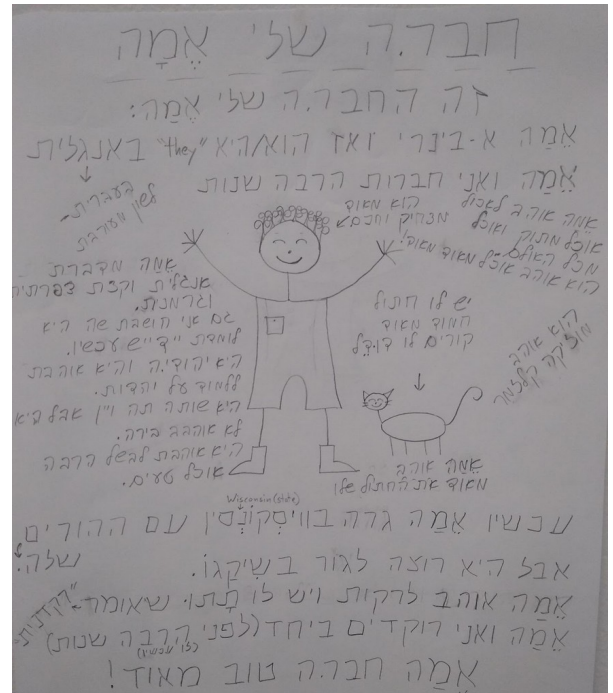 חבר.ה שלי אֶמָה
זה החבר.ה שלי אֶמַה:
אֶמַה א-בינרי ואז הוא/היא "they" באנגלית
↓
בעברית-
לשון מעורבת
אֶמַה ואני חברות הרבה שנות
הוא מאוד
מצחיק וחכם
אֶמַה אוהב לאכול
אוכל מתוק ואוכל
מכל העולם.
הוא אוהב אוכל מאוד מאוד!
אֶמַה מדברת
אנגלית וקצת צפרתית
וגרמנית.
גם אני חושבת שה היא
לומדת יידיש עכשיו.
היא יהודי.ה והיא אוהבת
ללמוד על יהדות.
היא שותה תה ויין אבל היא
לא אוהבב בירה.
היא אוהבת לבשל הרבה
אוכל טעים.
יש לו חתול
חמוד מאוד
קורים לו דוּדֶל
↓
הוא אוהב
מוזיקה קלזמר
אֶמַה אוהב
מאוד את החתול שלו
Wisconsin (state)
עכשיו אֶמַה גרה בוויסְקוֹנְסִין עם ההורים
שלה!
אבל היא רוצה לגור בשיקגוֹ.
אֶמַה אוהב לרקות ויש לו תָתו. שיאומר- "רקדנית"
אֶמַה ואני רוקדים ביחד (לפני הרבה שנות)
(לא עכשיו)
אֶמַה חבר.ה טוב מאוד!